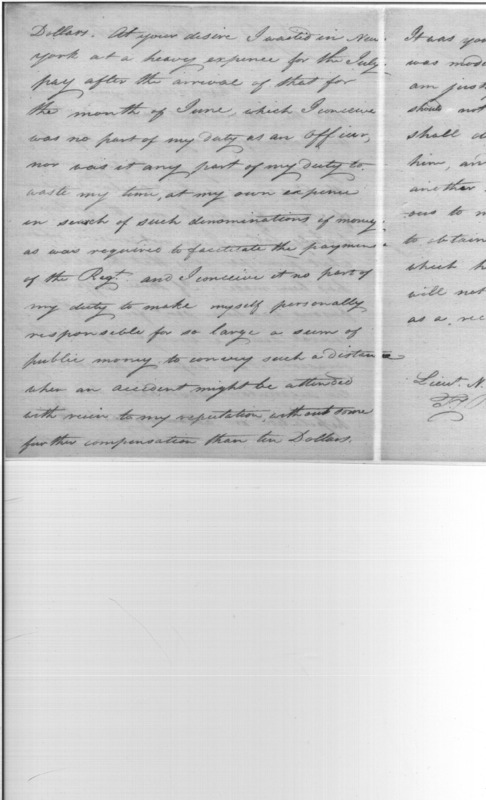 Dollars. At your desire I waited in New
york at a heavy expence for the July
pay after the arrival of that for
the month of June, which I conceive
was no part of my duty as an officer,
nor was it any part of my duty to
waste my time, at my own expence
in search of such denominations of money
as was required to facilitate the payment
of the Regt. and I conceive it no part of
my duty to make myself personally
responsible for so large a sum of
public money, to convey such a distance
when an accident might be attended
with ruin to my reputation, without some
further compensation than ten Dollars.
It was you
was mode
am justly
should not
shall d
him, an
another
ous to m
to obtain
which h
will not
as a rec
Lieut. N.